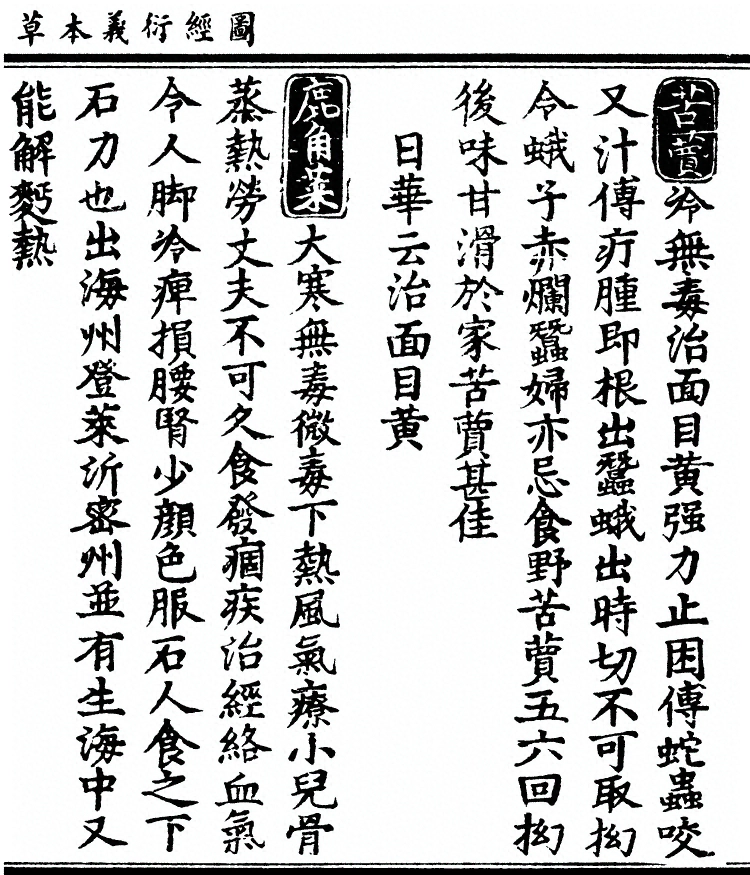 圖經衍義本草
苦蕒冷無毒治面目黄强力止困傅蛇蟲咬
又汁傅疔腫即根出蠶蛾出時切不可取拗
令蛾子赤爛蠶婦亦忌食野苦蕒五六回拗
後味甘滑於家苦蕒甚佳
日華云治面目黄
鹿角菜大寒無毒微毒下熱風氣療小兒骨
蒸熱勞丈夫不可久食發痼疾治經絡血氣
令人脚冷痺損腰腎少顔色服石人食之下
石力也出海州登萊沂密州並有生海中又
能解麪熱